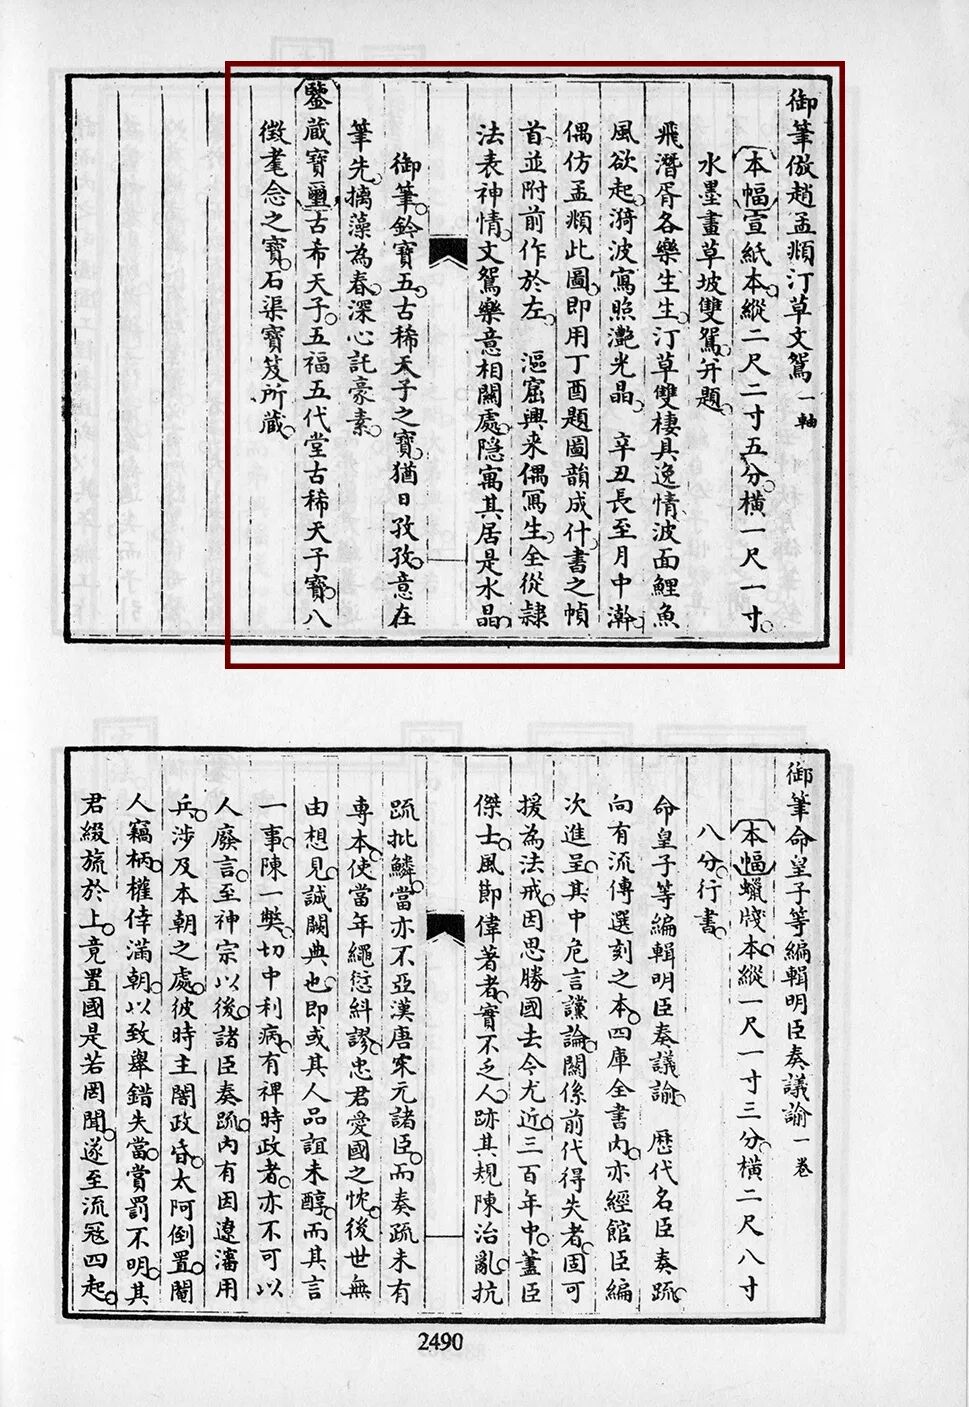 御筆倣趙孟頫汀草文鴛一軸
本幅宣紙本縱二尺二寸五分橫一尺一寸
水墨畫草坡雙鴛并題
飛潛胥各樂生生汀草雙棲具逸情波面鯉魚
風欲起漪波寫照灔光晶 辛丑長至月中澣
偶仿孟頫此圖即用丁酉題圖韻成什書之幀
首並附前作於左 漚窟興來偶寫生全從隷
法表神情文鴛樂意相關處隐寓其居是水晶
御筆鈐寶五古稀天子之寶猶日孜孜意在
筆先摛藻為春深心託豪素
鑒藏寶璽古希天子五福五代堂古稀天子寶八
徵耄念之寶石渠寶笈所藏
御筆命皇子等編輯明臣奏議諭一卷
本幅蠟牋本縱一尺一寸三分橫二尺八寸
八分行書
命皇子等編輯明臣奏議諭 歷代名臣奏疏
向有流傳選刻之本四庫全書内亦經館臣編
次進呈其中危言讜論關係前代得失者固可
援為法戒因思勝國去今尤近三百年中藎臣
傑士風節偉著者實不乏人跡其規陳治亂抗
疏批鱗當亦不亞漢唐宋元諸臣而奏疏未有
專本使當年繩愆糾謬忠君愛國之忱後世無
由想見誠闕典也即或其人品誼未醇而其言
一事陳一獘切中利病有裨時政者亦不可以
人廢言至神宗以後諸臣奏疏内有因遼瀋用
兵涉及本朝之處彼時主闇政昏太阿倒置閹
人竊柄權倖滿朝以致舉錯失當賞罰不明其
君綴旒於上竟置國是若罔聞遂至流寇四起
2490